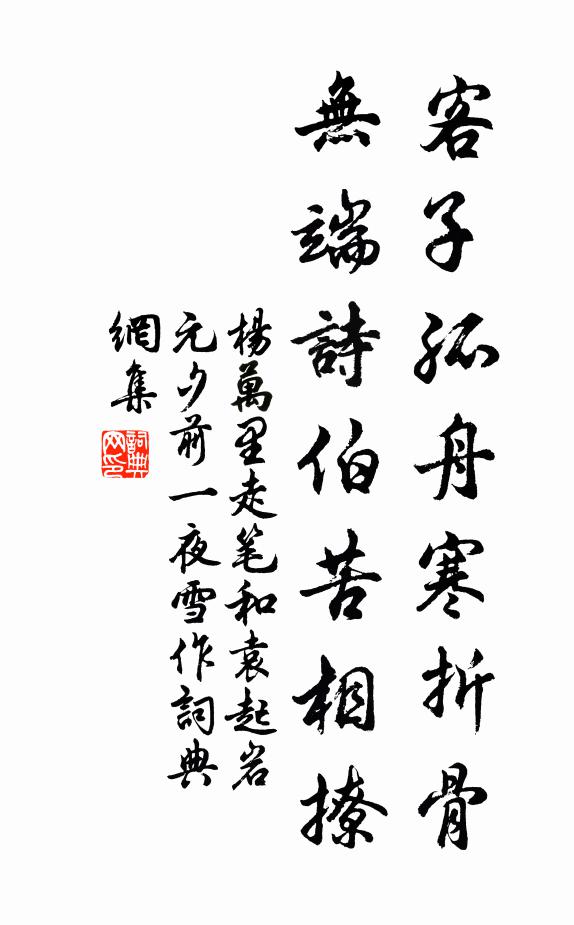 客子孤舟寒折骨
無端詩伯苦相撩
楊萬里走笔和袁起岩
元夕前一夜雪作詞典
網集
詞典网印